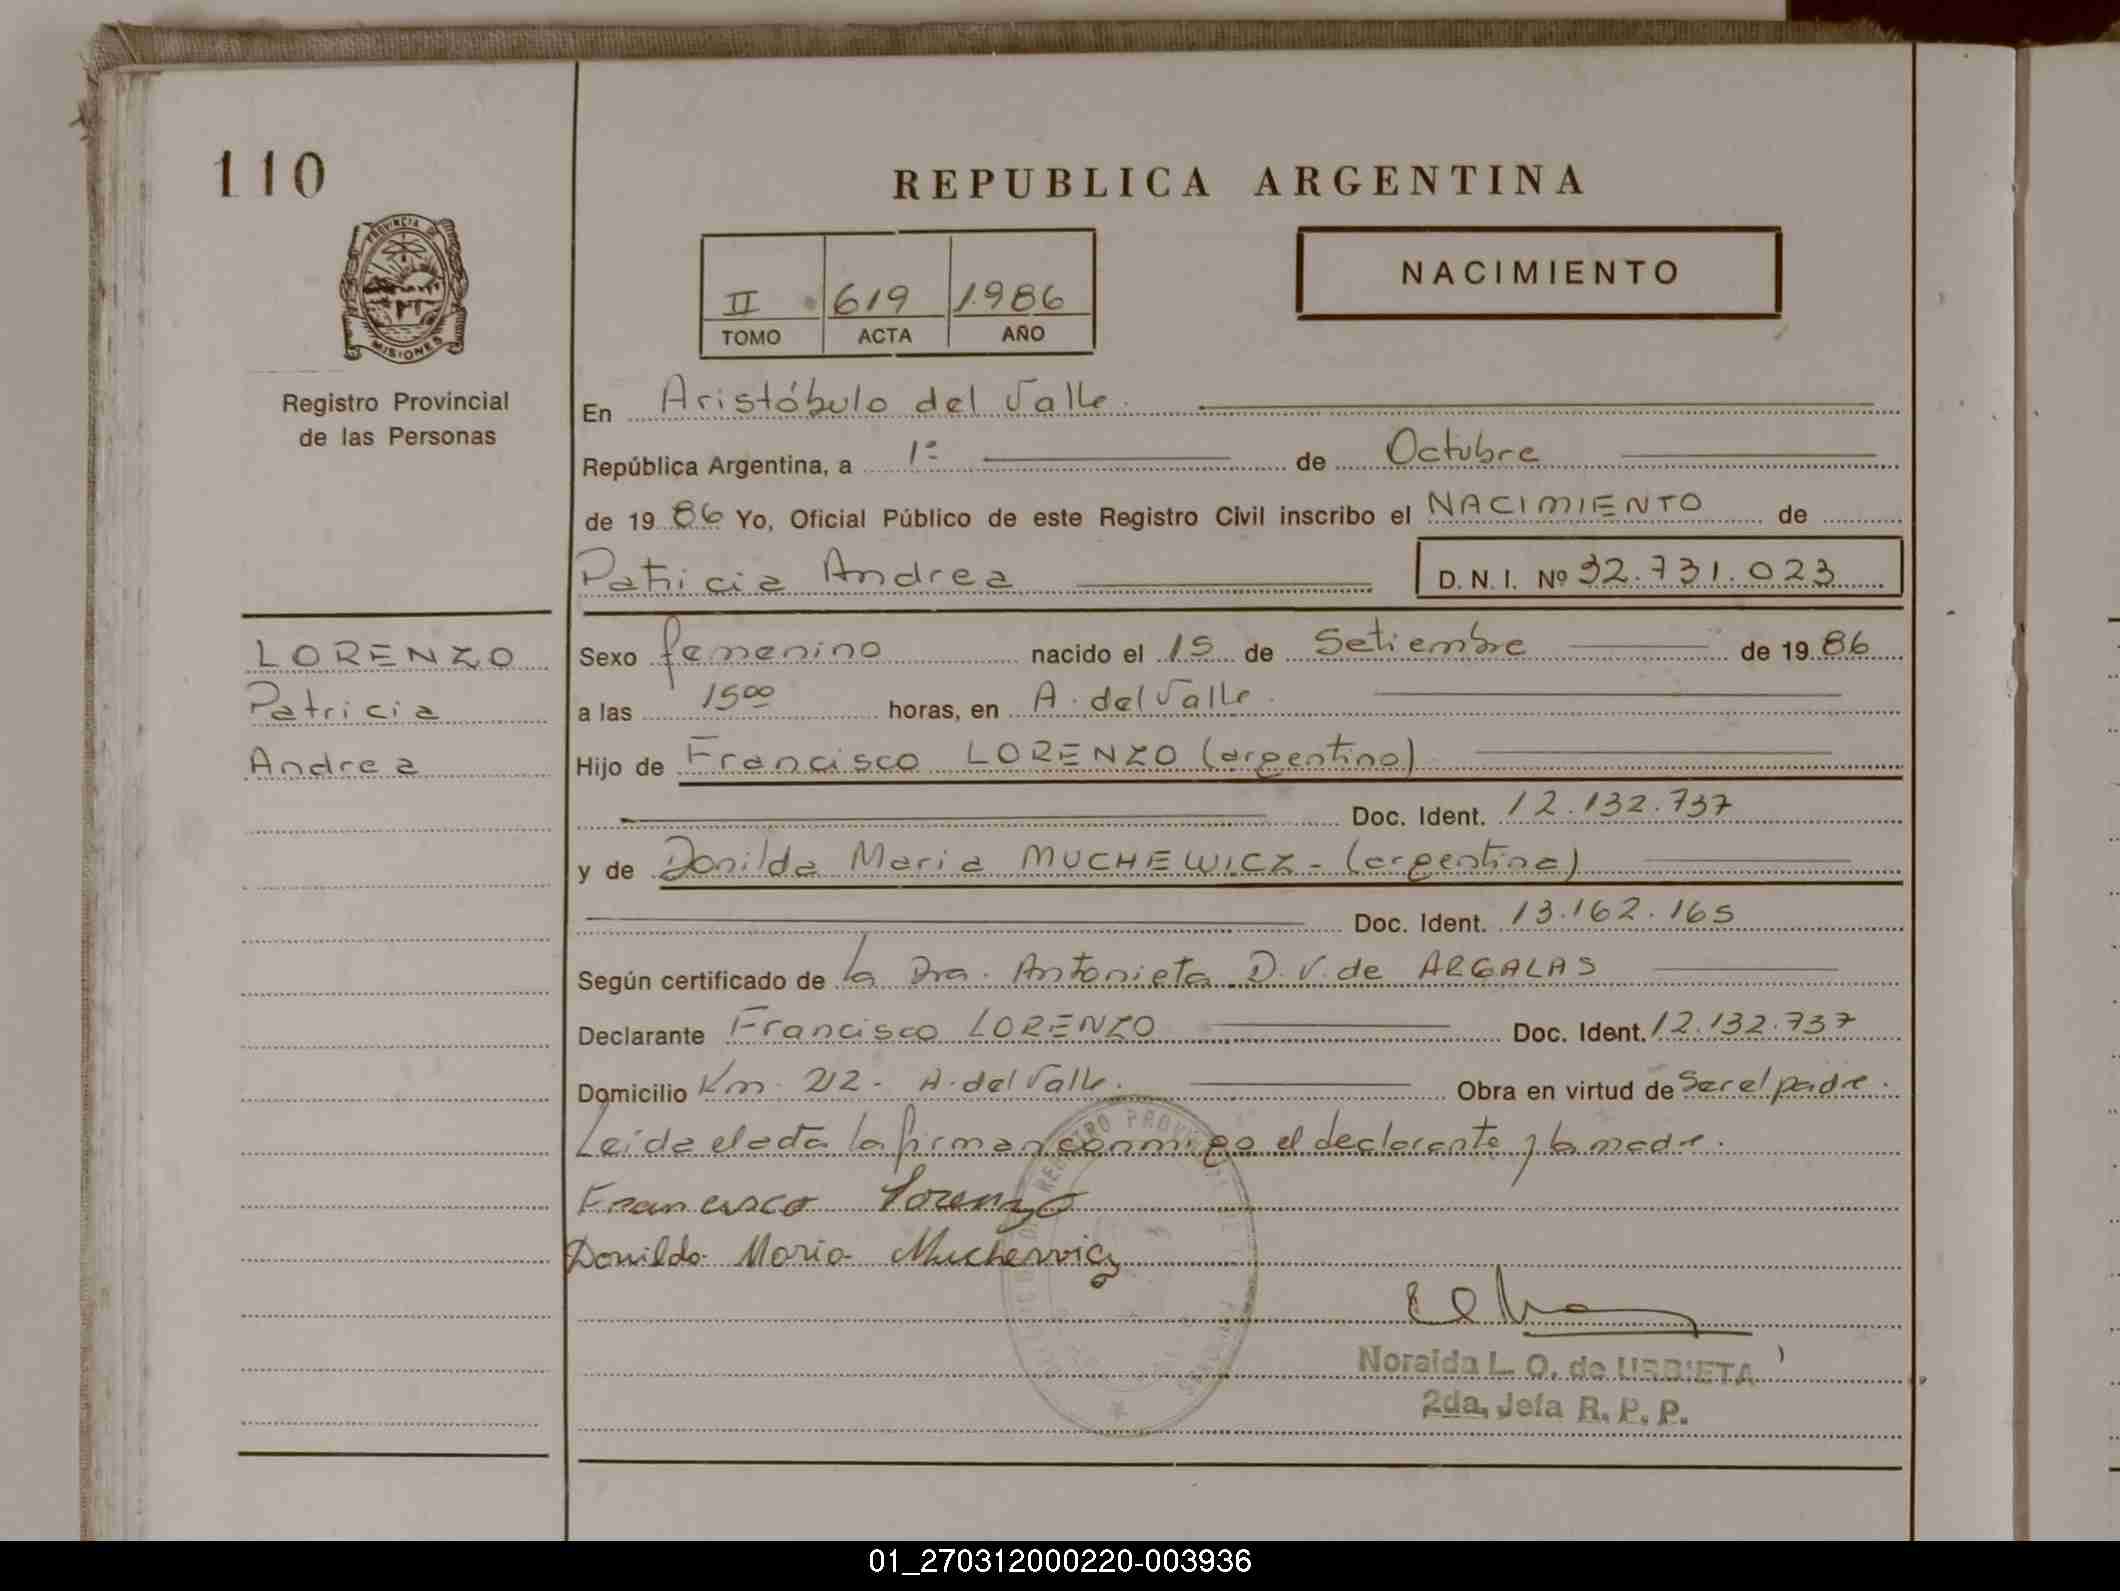 110
REPUBLICA ARGENTINA
PROVINCIA DE
MISIONES
Registro Provincial
de las Personas
II 619 1.986
TOMO ACTA AÑO
NACIMIENTO
En Aristóbulo del Valle.
República Argentina, a 1º de Octubre
de 19 86 Yo, Oficial Público de este Registro Civil inscribo el NACIMIENTO de
Patricia Andrea D. N. I. Nº 32.731.023
LORENZO
Patricia
Andrea
Sexo femenino nacido el 15 de Setiembre de 19 86
a las 1500 horas, en A. del Valle.
Hijo de Francisco LORENZO (argentino)
Doc. Ident. 12.132.737
y de Donilda Maria MUCHEWICZ - (argentina)
Doc. Ident. 13.162.165
Según certificado de la Dra. Antonieta D. V. de ARGALAS
Declarante Francisco LORENZO Doc. Ident. 12.132.737
Domicilio Km. 212 - A. del Valle. Obra en virtud de Ser el padre.
Leida el acta la firman conmigo el declarante y la madre.
Francisco Lorenzo
Donilda Maria Muchewicz
REGISTRO PROVINCIAL DE
Noraida L. O. de URBIETA
2da. Jefa R. P. P.
01_270312000220-003936